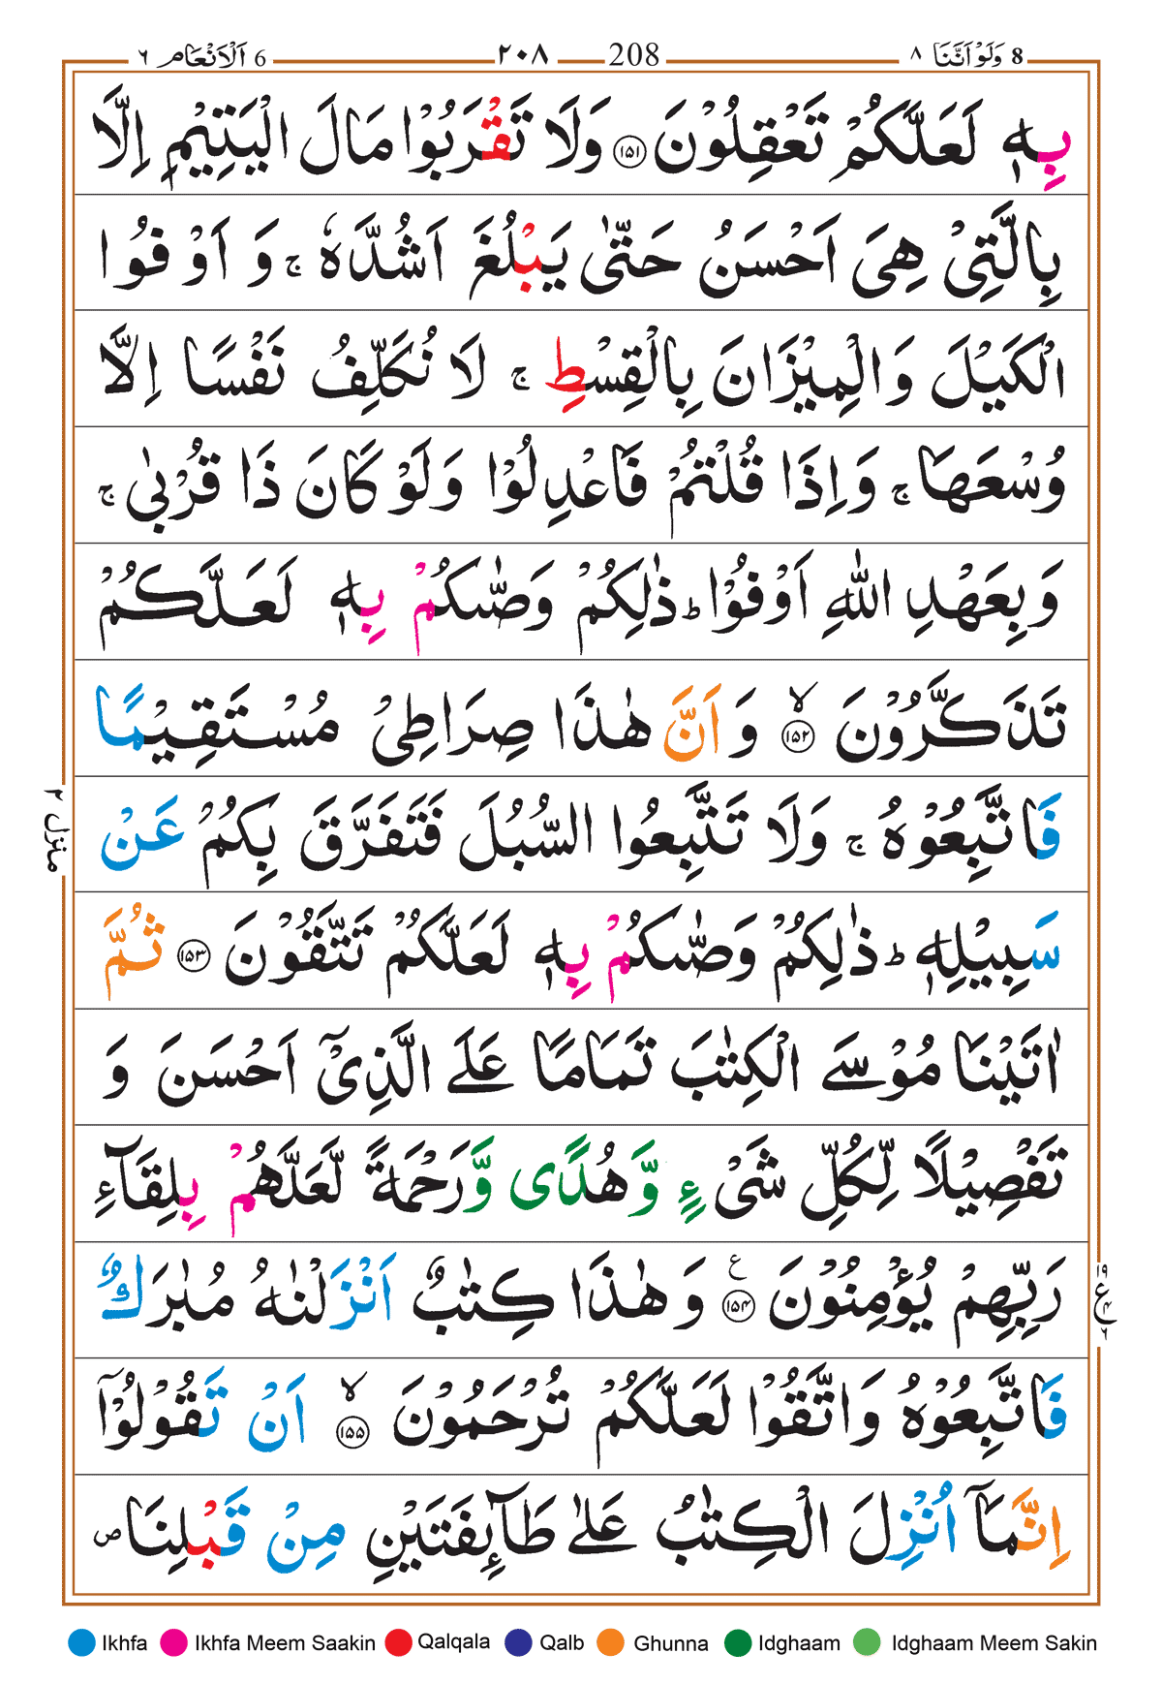 8 وَلَوْ اَنَّنَا ٨ 208 ٢٠٨ 6 اَلْاَنْعَام ٦
بِهٖ لَعَلَّكُمْ تَعْقِلُوْنَ ﴿۱۵۱﴾ وَلَا تَقْرَبُوْا مَالَ الْيَتِيْمِ اِلَّا
بِالَّتِيْ هِيَ اَحْسَنُ حَتّٰى يَبْلُغَ اَشُدَّهٗ ۚ وَ اَوْفُوا
الْكَيْلَ وَالْمِيْزَانَ بِالْقِسْطِ ۚ لَا نُكَلِّفُ نَفْسًا اِلَّا
وُسْعَهَا ۚ وَاِذَا قُلْتُمْ فَاعْدِلُوْا وَلَوْ كَانَ ذَا قُرْبٰى ۚ
وَبِعَهْدِ اللّٰهِ اَوْفُوْا ؕ ذٰلِكُمْ وَصّٰىكُمْ بِهٖ لَعَلَّكُمْ
تَذَكَّرُوْنَ ﴿۱۵۲﴾ ۙ وَاَنَّ هٰذَا صِرَاطِيْ مُسْتَقِيْمًا
فَاتَّبِعُوْهُ ۚ وَلَا تَتَّبِعُوا السُّبُلَ فَتَفَرَّقَ بِكُمْ عَنْ
سَبِيْلِهٖ ؕ ذٰلِكُمْ وَصّٰىكُمْ بِهٖ لَعَلَّكُمْ تَتَّقُوْنَ ﴿۱۵۳﴾ ثُمَّ
اٰتَيْنَا مُوْسَى الْكِتٰبَ تَمَامًا عَلَى الَّذِيْٓ اَحْسَنَ وَ
تَفْصِيْلًا لِّكُلِّ شَيْءٍ وَّهُدًى وَّرَحْمَةً لَّعَلَّهُمْ بِلِقَآءِ
رَبِّهِمْ يُؤْمِنُوْنَ ﴿۱۵۴﴾ ع وَهٰذَا كِتٰبٌ اَنْزَلْنٰهُ مُبٰرَكٌ
فَاتَّبِعُوْهُ وَاتَّقُوْا لَعَلَّكُمْ تُرْحَمُوْنَ ﴿۱۵۵﴾ ۙ اَنْ تَقُوْلُوْٓا
اِنَّمَآ اُنْزِلَ الْكِتٰبُ عَلٰى طَآئِفَتَيْنِ مِنْ قَبْلِنَا ۪
منزل ۲
Ikhfa Ikhfa Meem Saakin Qalqala Qalb Ghunna Idghaam Idghaam Meem Sakin